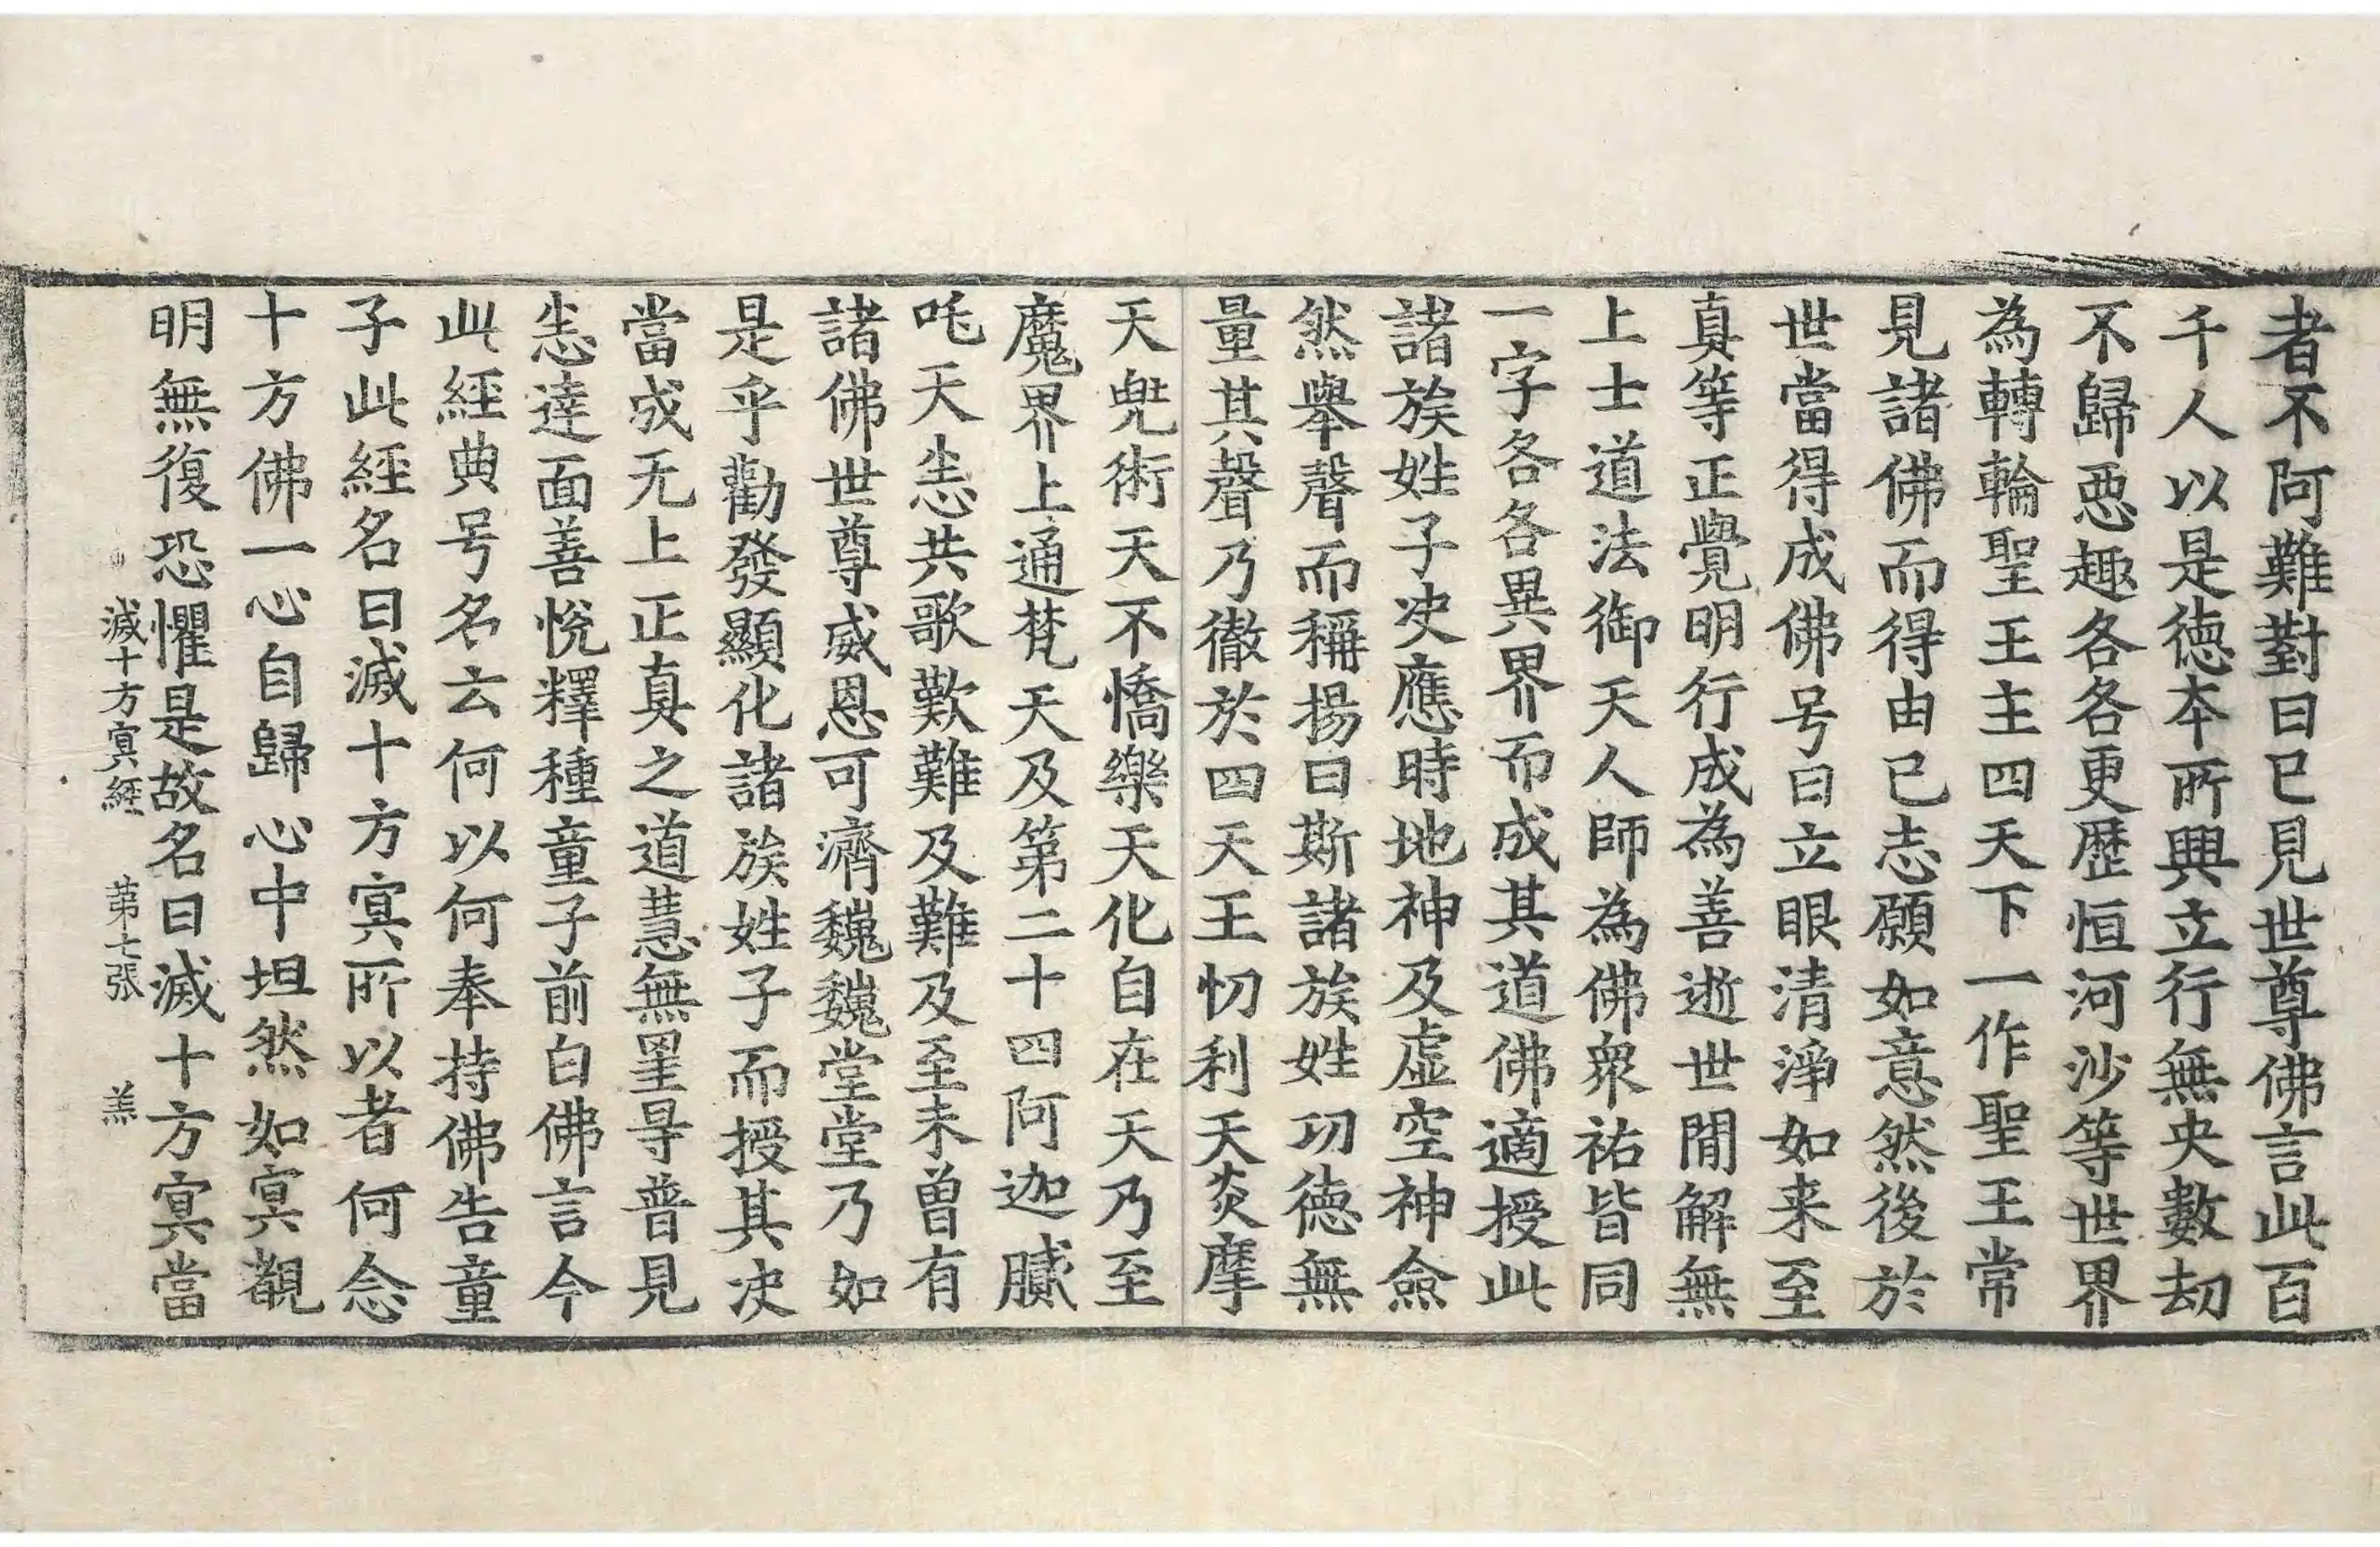 者不阿難對曰已見世尊佛言此百
千人以是德本所興立行無央數劫
不歸惡趣各各更歷恒河沙等世界
為轉輪聖王主四天下一作聖王常
見諸佛而得由已志願如意然後於
世當得成佛号曰立眼清淨如来至
真等正覺明行成為善逝世閒解無
上士道法御天人師為佛衆祐皆同
一字各各異界而成其道佛適授此
諸族姓子决應時地神及虛空神僉
然舉聲而稱揚曰斯諸族姓功德無
量其聲乃徹於四天王忉利天炎摩
天兜術天不憍樂天化自在天乃至
魔界上通梵天及第二十四阿迦膩
吒天恙共歌歎難及難及至未曾有
諸佛世尊威恩可濟巍巍堂堂乃如
是乎勸發顯化諸族姓子而授其决
當成无上正真之道慧無罣㝵普見
恙達面善恱釋種童子前白佛言今
此經典号名云何以何奉持佛告童
子此經名曰滅十方冥所以者何念
十方佛一心自歸心中坦然如冥覩
明無復恐懼是故名曰滅十方冥當
滅十方冥經 第七張 羔